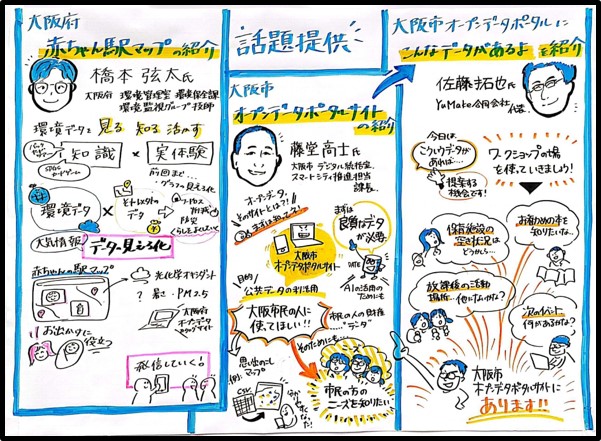 話題提供
大阪府
赤ちゃん駅マップの紹介
橋本弦太氏
大阪府 環境管理室 環境保全課
環境監視グループ 技師
環境データを見る 知る 活かす
知識 × 実体験
前回まで…
グラフの見える化
環境データ × それ以外のデータ
大気情報 データ見える化
赤ちゃんの駅マップ
光化学オキシダント
暑さ・PM2.5
大阪府
オープンデータ
お出かけに
役立つ
発信していく!
大阪市
オープンデータポータルサイト
の紹介
藤堂高士氏
大阪市 デジタル統括室
スマートシティ推進担当
課長
オープンデータ
ポータルサイトとは?!
まずは
良質なデータ
が必要
大阪市
オープンデータポータルサイト
DATE
AIの活用
のためにも
目的
公共データの利活用
大阪市民の人に
使ってほしい!!
市民の人の財産
データ
そのためにも…
思い出のこし
マップ
CSV
市民の方の
ニーズを知りたい
大阪市オープンデータポータルに
こんなデータがあるよ を紹介
佐藤拓也氏
YuMake合同会社
代表
今日は、
こういうデータが
あれば…
提案する
機会です!
ワークショップの場
を使っていきましょう!
保育施設の
空き状況は
どうかしら…
お勧めの本を
知りたいな…
放課後の活動
場所…他にないかな?
次のイベント
何があるかな?
大阪市
オープンデータポータルサイトに
あります!!